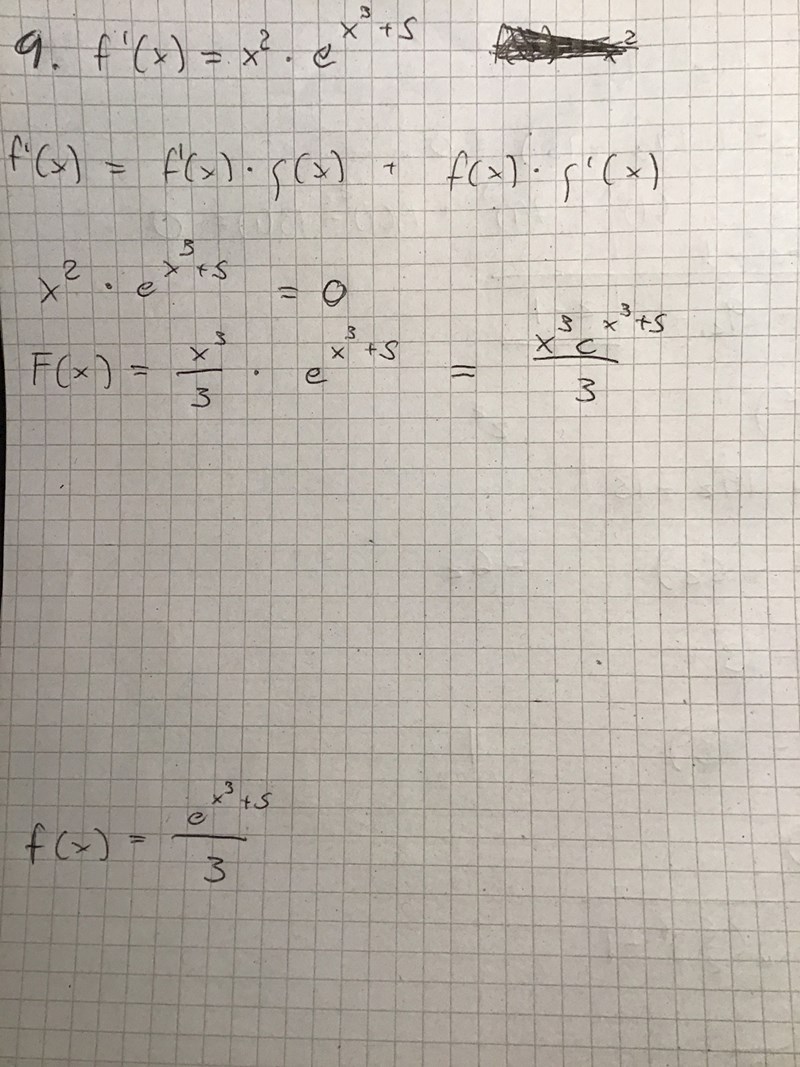 9. f'(x) = x² · e^(x³+5)
f'(x) = f'(x) · g(x) + f(x) · g'(x)
x² · e^(x³+5) = 0
F(x) = x³/3 · e^(x³+5) = x³e^(x³+5)/3
f(x) = e^(x³+5)/3